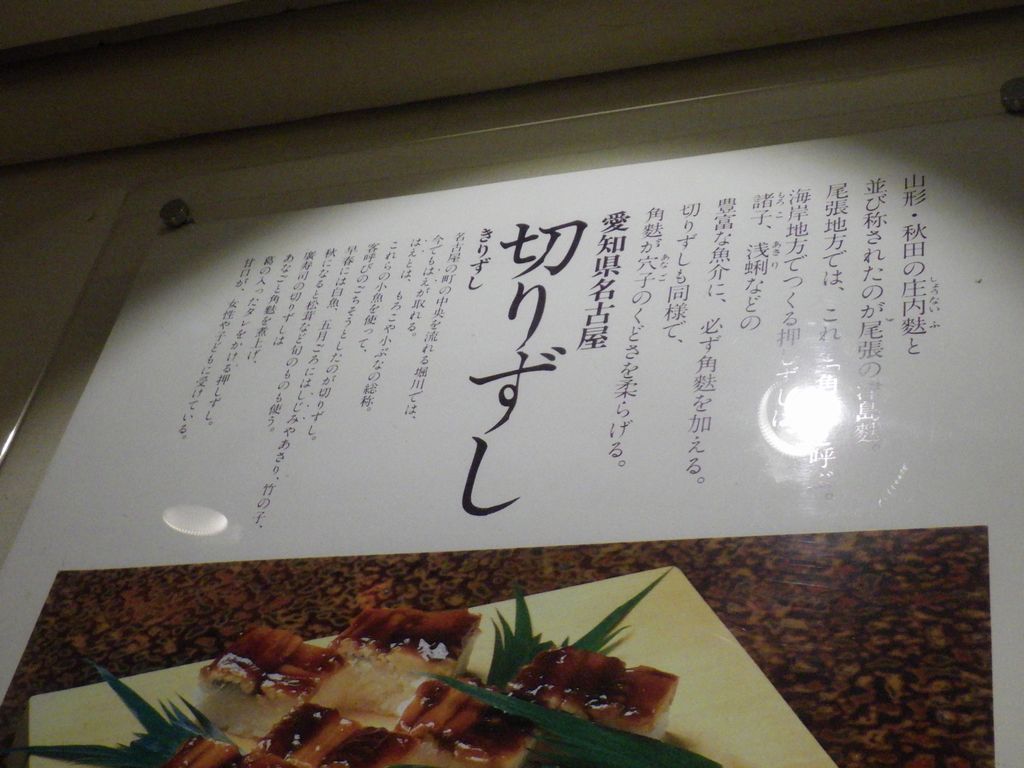 山形・秋田の庄内麩と
しょうないふ
並び称されたのが尾張の津島麩。
尾張地方では、これ 角 呼ぶ。
海岸地方でつくる押しずしは
諸子、浅蜊などの
もろこ
あさり
豊富な魚介に、必ず角麩を加える。
切りずしも同様で、
角麩が穴子のくどさを柔らげる。
あなご
愛知県名古屋
切りずし
きりずし
名古屋の町の中央を流れる堀川では、
今でもはえが取れる。
はえとは、もろこや小ぶなの総称。
これらの小魚を使って、
客呼びのごちそうとしたのが切りずし。
早春には白魚、五月ごろにはしじみやあさり、竹の子、
秋になると松茸など旬のものも使う。
廣寿司の切りずしは
あなごと角麩を煮上げ、
葛の入ったタレをかける押しずし。
甘口が、女性や子どもに受けている。